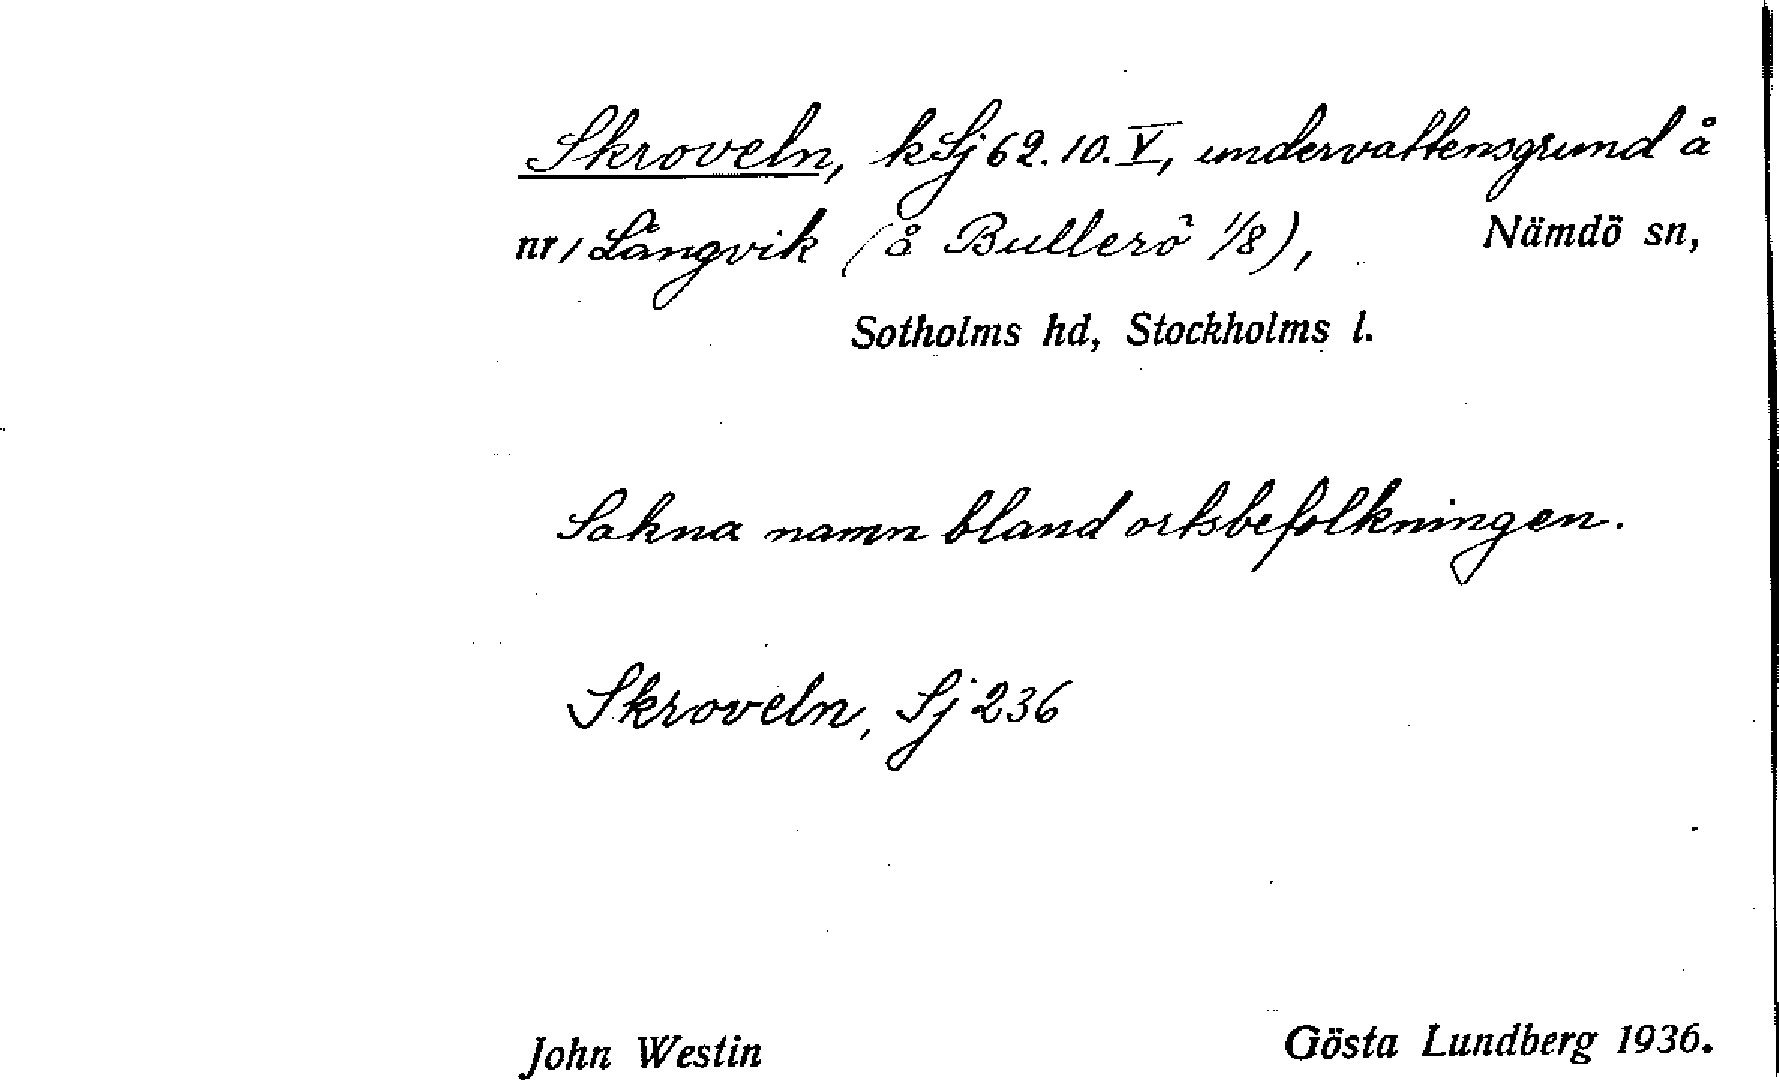 Skroveln, kSj 62.10.V, undervattensgrund å
nr 1 Långvik (å Bullerö 1/8), Nämdö sn,
Sotholms hd, Stockholms l.
Sakna namn bland ortsbefolkningen.
Skroveln, Sj 236
John Westin Gösta Lundberg 1936.